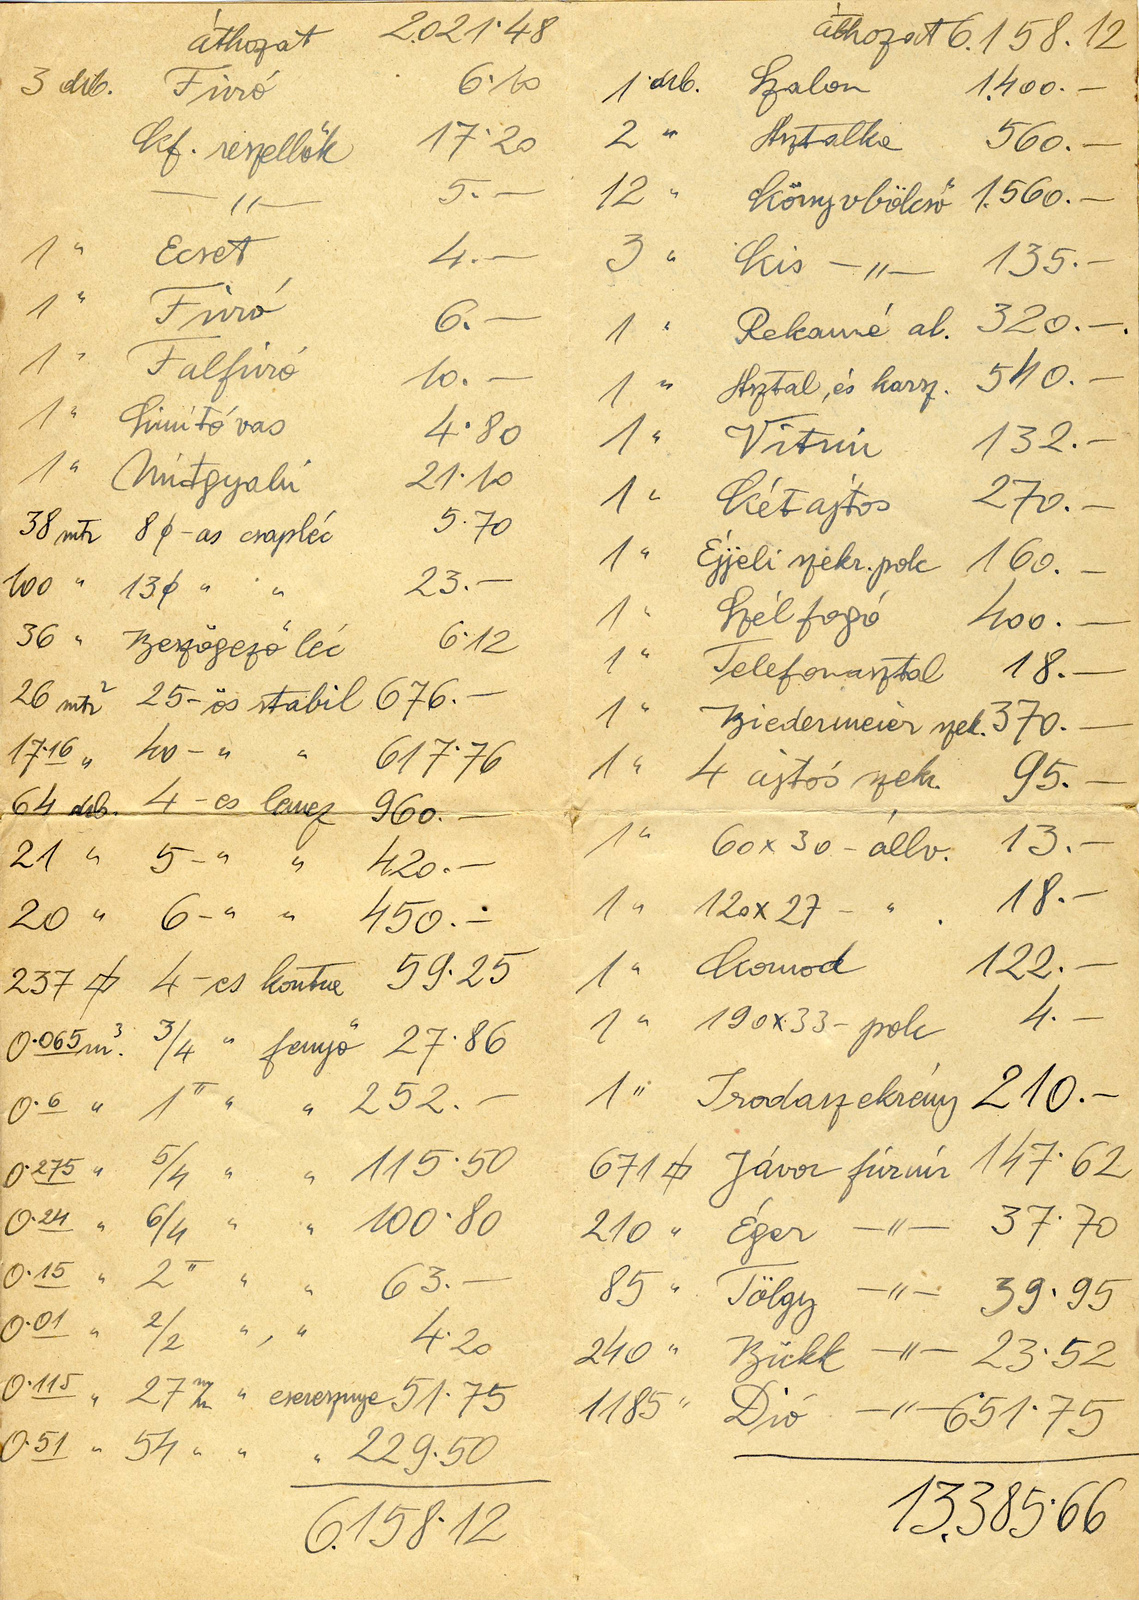 áthozat 2.021·48
3 drb. Fúró 6·10
Kf. reszellők 17·20
—〃— 5.—
1 〃 Ecset 4.—
1 〃 Fúró 6.—
1 〃 Falfúró 10.—
1 〃 Simító vas 4·80
1 〃 Nútgyalú 21·10
38 mtr 8∅-as csapléc 5·70
100 〃 13∅ 〃 〃 23.—
36 〃 Beszögező léc 6·12
26 mtr² 25-ös stabil 676.—
17·16 〃 40-〃 〃 617·76
64 drb. 4-es lemez 960.—
21 〃 5-〃 〃 420.—
20 〃 6-〃 〃 450.—
237 ⌀ 4-es kontra 59·25
0·065 m³. 3/4 〃 fenyő 27·86
0·6 〃 1" 〃 〃 252.—
0·275 〃 5/4 〃 〃 115·50
0·24 〃 6/4 〃 〃 100·80
0·15 〃 2" 〃 〃 63.—
0·01 〃 2/2 〃 〃 4·20
0·115 〃 27 m/m 〃 cseresznye 51·75
0·51 〃 54 〃 〃 〃 229·50
6.158·12
áthozat 6.158.12
1 drb. Szalon 1.400.—
2 〃 Asztalka 560.—
12 〃 Könyvbölcső 1.560.—
3 〃 Kis —〃— 135.—
1 〃 Rekamé al. 320.—.
1 〃 Asztal, és karsz. 540.—
1 〃 Vitrin 132.—
1 〃 Kétajtos 270.—
1 〃 Éjjeli szekr. polc 160.—
1 〃 Szélfogó 400.—
1 〃 Telefonasztal 18.—
1 〃 Biedermeier szek. 370.—
1 〃 4 ajtós szekr. 95.—
1 〃 60x30 - állv. 13.—
1 〃 120x27 - 〃 . 18.—
1 〃 Komod 122.—
1 〃 190x33 - polc 4.—
1 〃 Irodaszekrény 210.—
671 ⌀ Jávor fúrnír 147·62
210 〃 Éger —〃— 37·70
85 〃 Tölgy —〃— 39·95
240 〃 Bükk —〃— 23·52
1185 〃 Dió —〃— 651·75
13.385·66